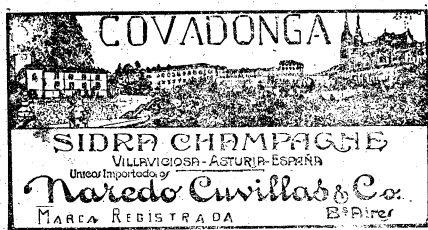 COVADONGA
SIDRA CHAMPAGNE
VILLAVICIOSA-ASTURIA-ESPAÑA
Unicos Importadores
Naredo Cuvillas & Co.
MARCA REGISTRADA Bs Aires